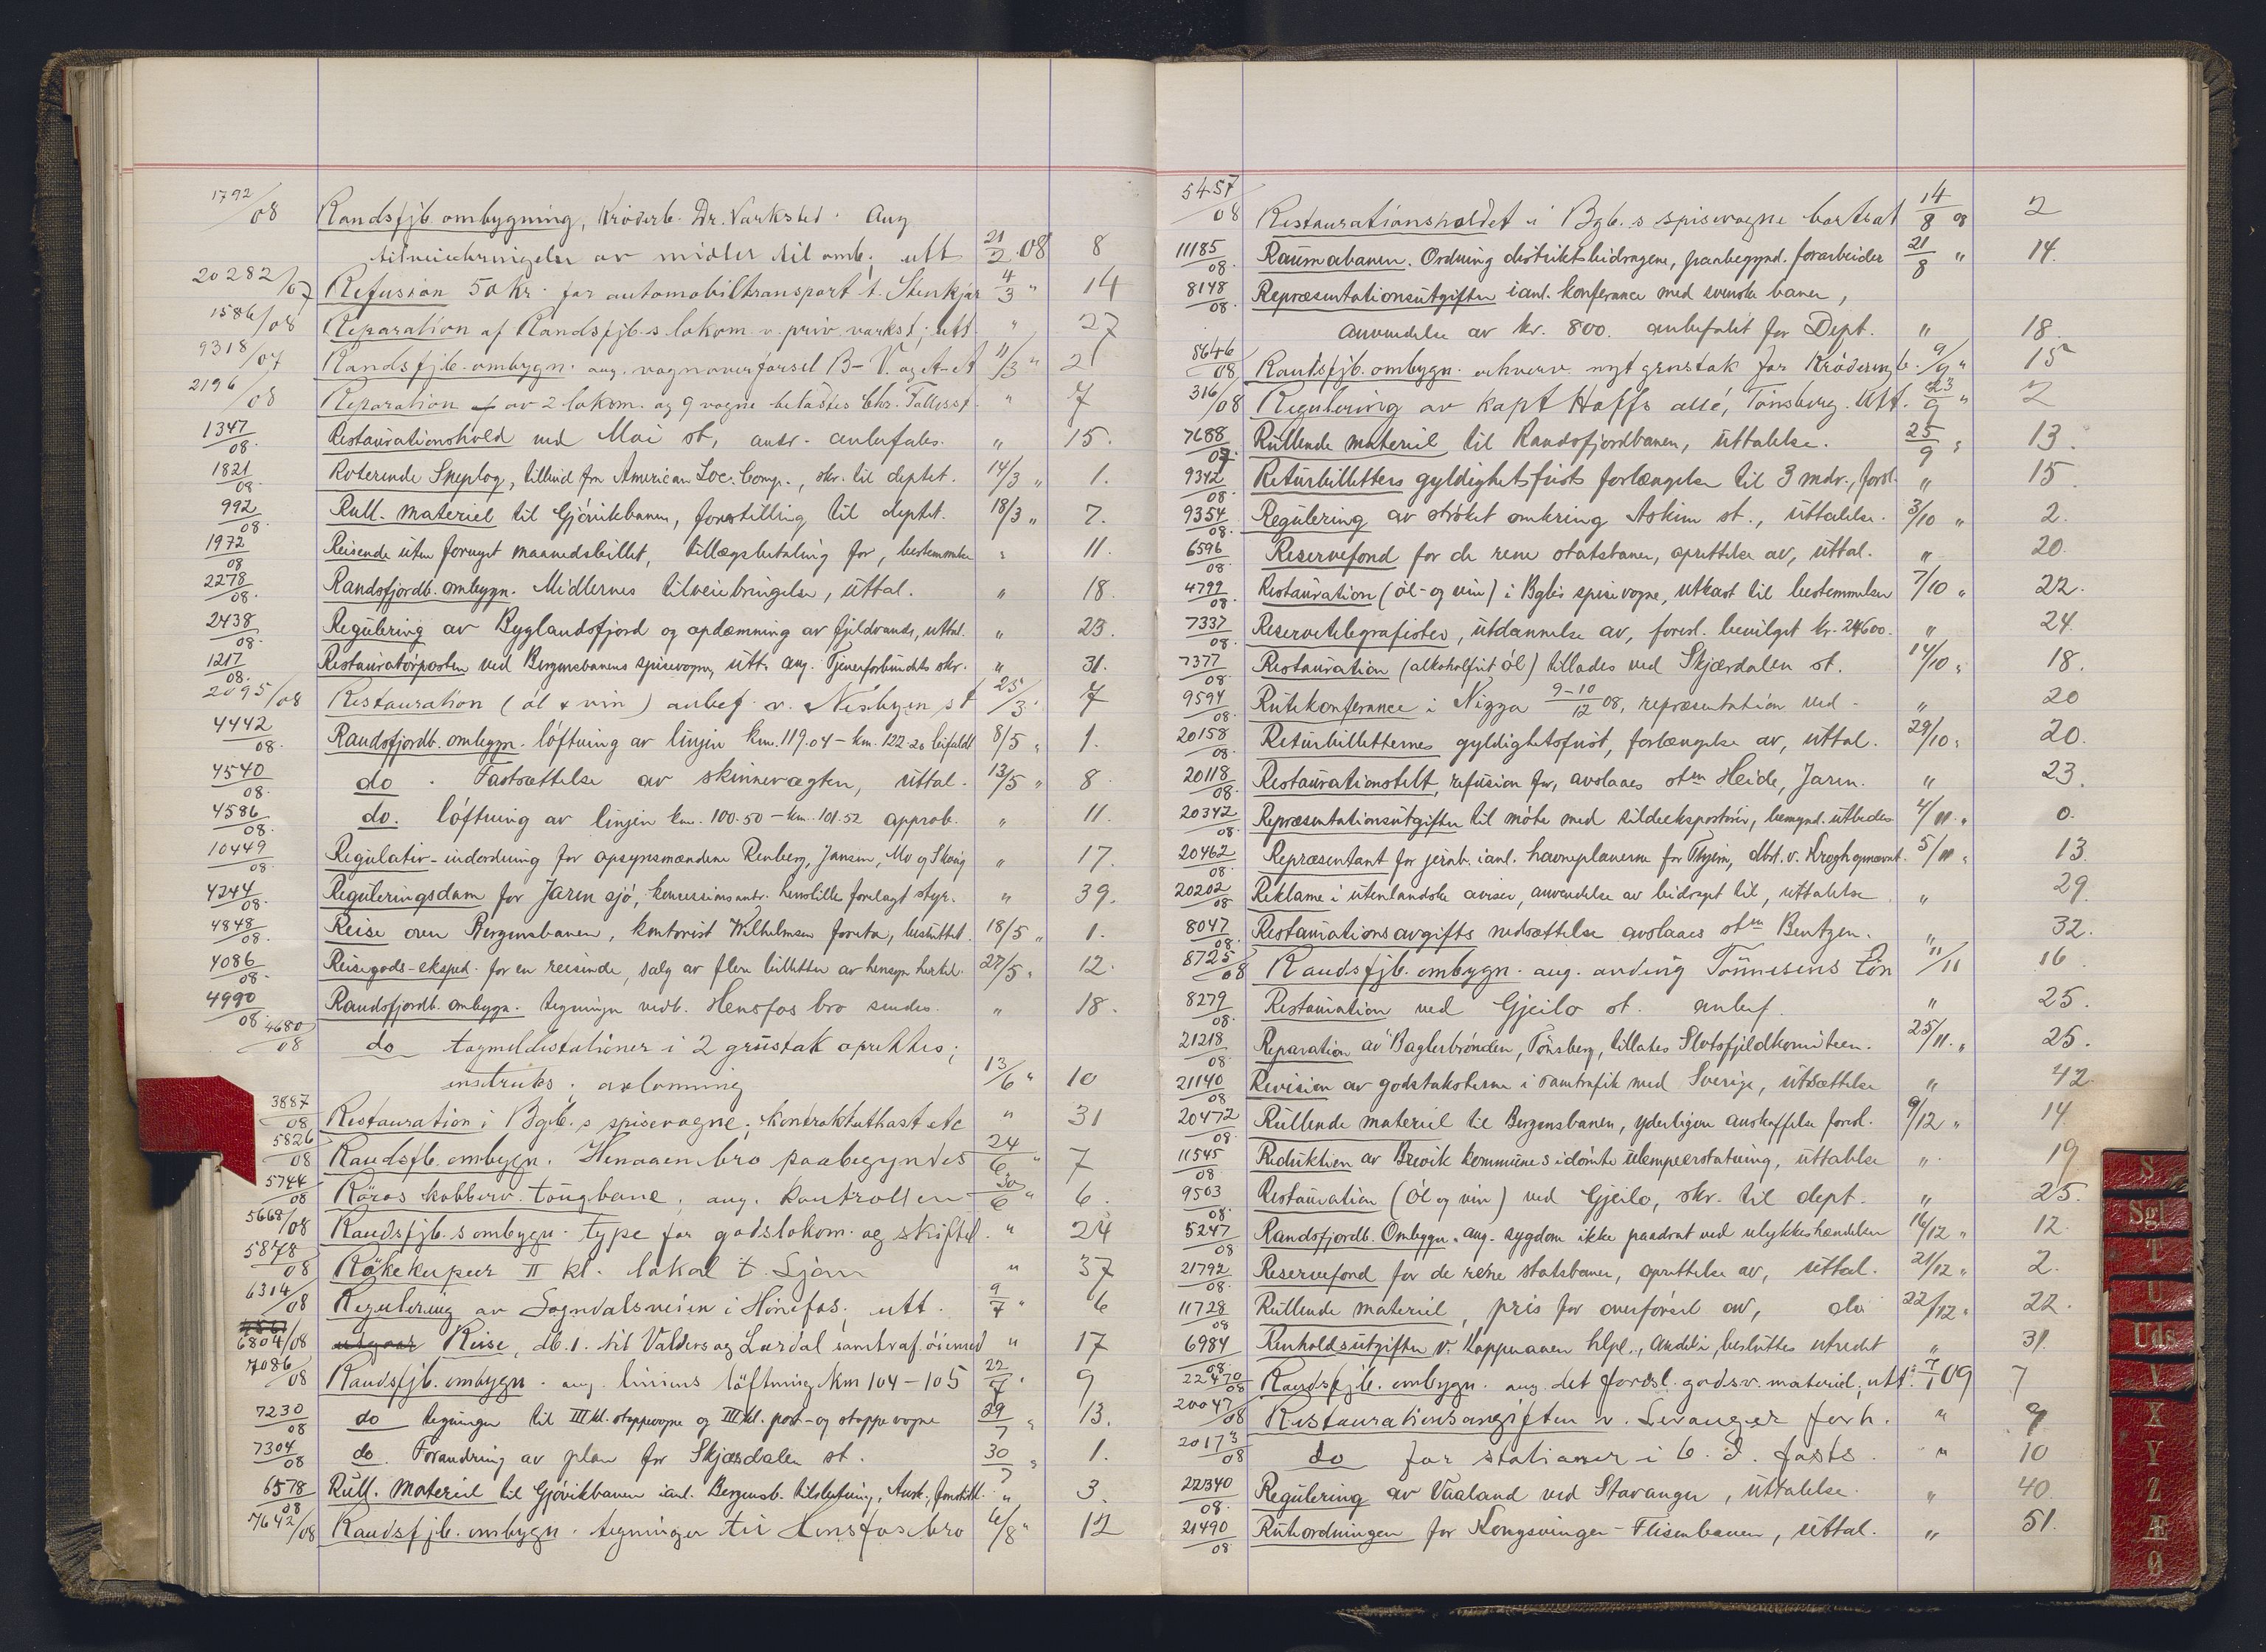 1792/08 Randsfjb. ombygning, Krøderb. Dr. Varksted. Ang
tilveiebringelse av midler til omb; utt 21/2 08 8
20282/07 Refusion 50 kr. for automobiltransport t. Stenkjær 4/3 " 14
1586/08 Reparation af Randsfjb.s lokom. v. priv. varkst; utt. " 27
9318/07 Randsfjb. ombygn. ang. vognoverførsel B-V. og A-A 11/3 " 21
2196/08 Reparation av 2 lokom. og 9 vogne betastes Chr. " 7
1347/08. Restaurationshold ved Moi st, andr. anbefales. " 15.
1821/08 Roterende Sneplog, tilbud fra American Loc. Comp., skr. til deptet. 14/3 " 1.
992/08. Rull. materiel til Gjøvikbanen, forestilling til deptet. 18/3 " 7.
1972/08 Reisende uten fornyet maanedsbillet, tillægsbetaling for, bestemmelse " 11.
2278/08. Randsfjordb. ombygn. Midlernes tilveiebringelse, uttal. " 18.
2438/08. Regulering av Byglandsfjord og opdæmning av fjeldvande, uttal. " 23.
1217/08. Restauratørposten ved Bergensbanens spisevogne, utt. ang. Tjenerforbundets skr. " 31.
2095/08 Restauration (øl & vin) anbef. v. Nesbyen st 25/3 " 7
4442/08. Randsfjordb. ombygn. løftning av linjen km. 119.04 - km. 122.20 bifaldt 8/5 " 1.
4540/08. do. Fastsættelse av skinnevægten, uttal. 13/5 " 8.
4586/08. do. løftning av linjen km. 100.50 - km. 101.52 approb. " 11.
10449/08. Regulativ-indordning for opsynsmændene Renberg, Jansen, Mo og Skoug " 17.
4244/08. Reguleringsdam for Jaren sjø, koncessionsandr. henstilles forelagt styr. " 39.
4848/08. Reise over Bergensbanen, kontorist Wilhelmsen foreta, besluttet. 18/5 " 1.
4086/08. Reisegods-eksped. for en reisende, salg av flere billetter av hensyn hertil. 27/5 " 12.
4990/08. Randsfjordb. ombygn. tegninger vedk. Hensfos bro sendes. " 18.
4680/08 do togmeldestationer i 2 grustak oprettes;
instruks; avlønning 13/6 " 10
3887/08 Restauration i Bgb.s spisevogne; kontraktutkast etc " 31
5826/08 Randsfb. ombygn. Henaaen bro paabegyndes 24/6 " 7
5744/08 Röros kobberv. tougbane, ang. kontrollen 30/6 " 6.
5668/08 Randsfjb.s ombygn. type for godslokom. og skiftel. " 24
5878/08 Røkekupeer II kl. lokal t. Ljan " 37
6314/08 Regulering av Sogndalsveien i Hønefos; utt. 9/7 " 6
6804/08 Reise, db. 1. til Valdres og Lærdal samtraf. øiemed " 17
7086/08 Randsfjb. ombygn. ang. liniens løftning Km 104-105 22/7 " 9
7230/08 do tegninger til III kl. stoppevogne og III kl. post- og stoppevogne 29/7 " 13.
7304/08 do. Forandring av plan for Skjærdalen st. 30/7 " 1.
6578/08 Rull. Materiel til Gjøvikbanen i anl. Bergensb. tilslutning, Ansk., forestill. " 3.
7642/08 Randsfjb. ombygn. tegninger til Hensfos bro 6/8 " 12
5457/08 Restaurationsholdet i Bgb.s spisevogne bortsat 14/8 08 2
11185/08. Raumabanen. Ordning distriktsbidragene, paabegynd. forarbeider 21/8 " 14.
8148/08. Repræsentationsutgifter i anl. konferance med svenske baner,
anvendelse av kr. 800. anbefalet for Dept. " 18.
8646/08 Randsfjb. ombygn. erhverv. nyt grustak for Krødernb. 9/9 " 15
316/08 Regulering av kapt Hoffs allé, Tønsberg. Utt. 23/9 " 2
7688/07. Rullende materiel til Randsfjordbanen, uttalelse. 25/9 " 13.
9342/08. Returbilletters gyldighetsfrists forlængelse til 3 mdr., forsl. " 15.
9354/08. Regulering av strøket omkring Askim st., uttalelse. 3/10 " 2.
6596/08. Reservefond for de rene statsbaner, oprettelse av, uttal. " 20.
4799/08. Restauration (øl- og vin) i Bgb's spisevogne, utkast til bestemmelser 7/10 " 22.
7337/08. Reservetelegrafister, utdannelse av, foresl. bevilget kr. 24600. " 24.
7377/08 Restauration (alkoholfrit øl) tillades ved Skjærdalen st. 14/10 " 18.
9594/08. Rutekonferance i Nizza 9-10/12 08, repræsentation ved. " 20
20158/08 Returbilletternes gyldighetsfrist, forlængelse av, uttal. 29/10 " 20.
20118/08. Restaurationstelt, refusion for, avslaaes stm Heide, Jaren. " 23.
20342/08. Repræsentationsutgifter til møte med sildeeksportører, bemynd. utbedes 4/11 " 0.
20462/08. Repræsentant for jernb. i anl. havneplanerne for Thjem, dbst. v. Krogh opnævnt. 5/11 " 13.
20202/08 Reklame i utenlandske aviser, anvendelse av bidraget til, uttalelse. " 29.
8047/08. Restaurationsavgifts nedsættelse avslaaes stm Bentzen. " 32.
8725/08 Randsfjb. ombygn. ang. anding Tönnesens Lön 11/11 16
8279/08. Restauration ved Gjeilo st. anbef. " 25.
21218/08 Reparation av "Baglerbrønden, Tønsberg, tillates Slotsfjeldkomiteen. 25/11 " 25.
21140/08 Revision av godstaksterne i samtrafik med Sverige, utsættelse " 42.
20472/08. Rullende materiel til Bergensbanen, yderligere anskaffelse foresl. 9/12 " 14.
11545/08 Reduktion av Brevik kommunes idømte ulempeerstatning, uttalelse " 19
9503/08. Restauration (øl og vin) ved Gjeilo, skr. til dept. " 25.
5247/08 Randsfjordb. Ombygn. ang. sygdom ikke paadrat ved ulykkeshændelse 16/12 " 12.
21792/08. Reservefond for de rene statsbaner, oprettelse av, uttal. 21/12 " 2.
11728/08 Rullende materiel, pris for overførsel av, do 22/12 " 22.
6984/08 Renholdsutgifter v. Kopperaaen hlpl., andel i, besluttes utredt " 31.
22470/08 Randsfjb. ombygn. ang. det fordsl. godsv. materiel; utt. 7/1 09 7
20047/08 Restaurationsavgiften v. Levanger forh. " 9
20173/08 do for stationer i 6. d. fasts. " 10
22340/08. Regulering av Vaaland ved Stavanger, uttalelse. " 40.
21490/08 Ruteordningen for Kongsvinger-Flisenbanen, uttal. " 51.
S
Sgl
T
U
Uds
V
X
Y
Z
Æ
Ø